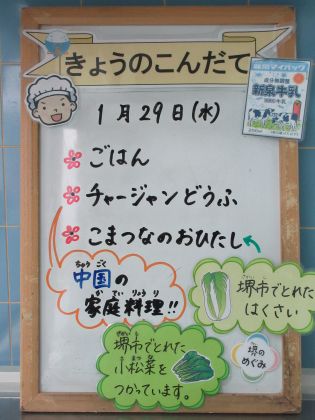 きょうのこんだて
1月29日(水)
ごはん
チャージャンどうふ
こまつなのおひたし
ちゅうごく
中国の
かていりょうり
家庭料理!!
堺市でとれた
はくさい
堺市でとれた
こまつな
小松菜を
つかっています。
堺の
めぐみ
成分無調整
新泉牛乳